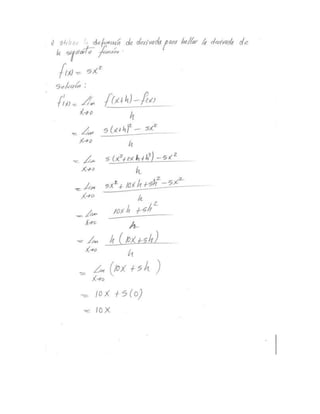 utilizar la definición de derivada para hallar la derivada de
la siguiente función.
f(x) = 5x²
Solución:
f'(x) = Lim f(x+h) - f(x)
x→0 h
= Lim 5(x+h)² - 5x²
x→0 h
= Lim 5(x²+2xh+h²) - 5x²
x→0 h
= Lim 5x² + 10xh + 5h² - 5x²
x→0 h
= Lim 10xh + 5h²
x→0 h
= Lim h(10x+5h)
x→0 h
= Lim (10x + 5h)
x→0
= 10x + 5(0)
= 10x